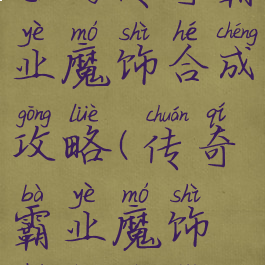 yè mó shì hé chéng
业魔饰合成
gōng lüè chuán qí
攻略(传奇
bà yè mó shì
霸业魔饰